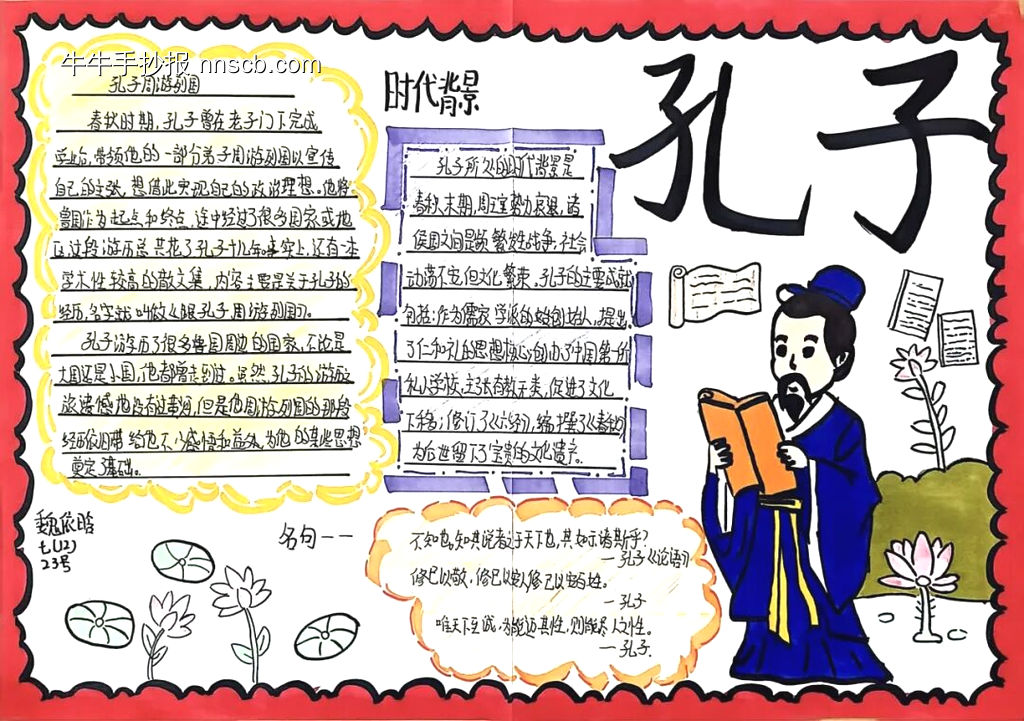 牛牛手抄报 nnscb.com
孔子周游列国
春秋时期,孔子曾在老子门下完成
学业后,带领他的一部分弟子周游列国以宣传
自己的主张,想借此实现自己的政治理想。他将
鲁国作为起点和终点,途中经过了很多国家或地
区,这段游历总共花了孔子十几年。事实上,还有一本
学术性较高的散文集,内容主要是关于孔子的
经历,名字就叫做《跟孔子周游列国》。
孔子游历了很多鲁国周边的国家,不论是
大国还是小国,他都曾走到过。虽然孔子的游历
没遗憾也没有过
,但是他周游列国的那段
经历依旧带给他不少感悟和益处,为他的某些思想
奠定了基础。
时代背景
孔子所处的时代背景是
春秋末期,周王室势力衰退,诸
侯国之间是频繁发生战争,社会
动荡不安但文化繁荣。孔子的主要成就
包括:作为儒家学派的始创始人,提出
了仁和礼的思想核心;创办了中国第一所
私人学校,主张有教无类,促进了文化
下移;修订了《六经》,编撰了《春秋》
为后世留下了宝贵的文化遗产.
孔子
魏依晗
七(12)
23号
名句——
不知也,知其说者之于天下也,其如示诸斯乎?
—孔子《论语》
修己以敬,修己以安人修己以安百姓。
—孔子
唯天下至诚,为能尽其性,则能尽人之性。
—孔子.